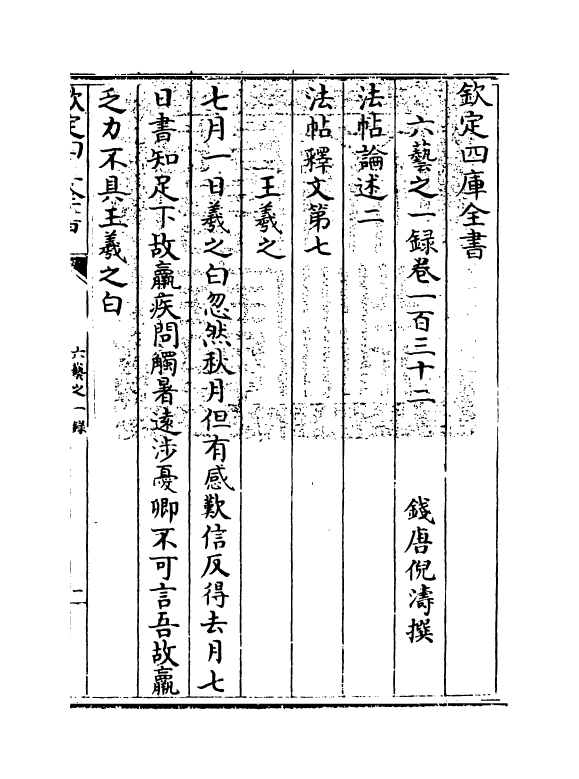 欽定四庫全書
六藝之一錄卷一百三十二
錢唐倪濤撰
法帖論述二
法帖釋文第七
王羲之
七月一日羲之白忽然秋月但有感歎信反得去月七
日書知足下故羸疾問觸暑遠涉憂卿不可言吾故羸
乏力不具王羲之白
欽定四庫全書
六藝之一錄